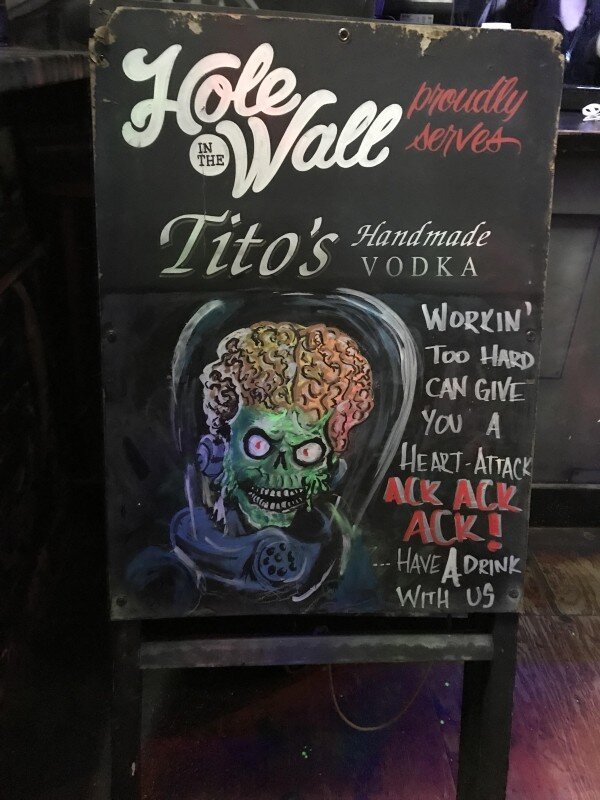 Hole
IN
THE
Wall
proudly
serves
Tito's Handmade
VODKA
WORKIN'
TOO HARD
CAN GIVE
YOU A
HEART-ATTACK
ACK ACK
ACK!
...HAVE A DRINK
WITH US